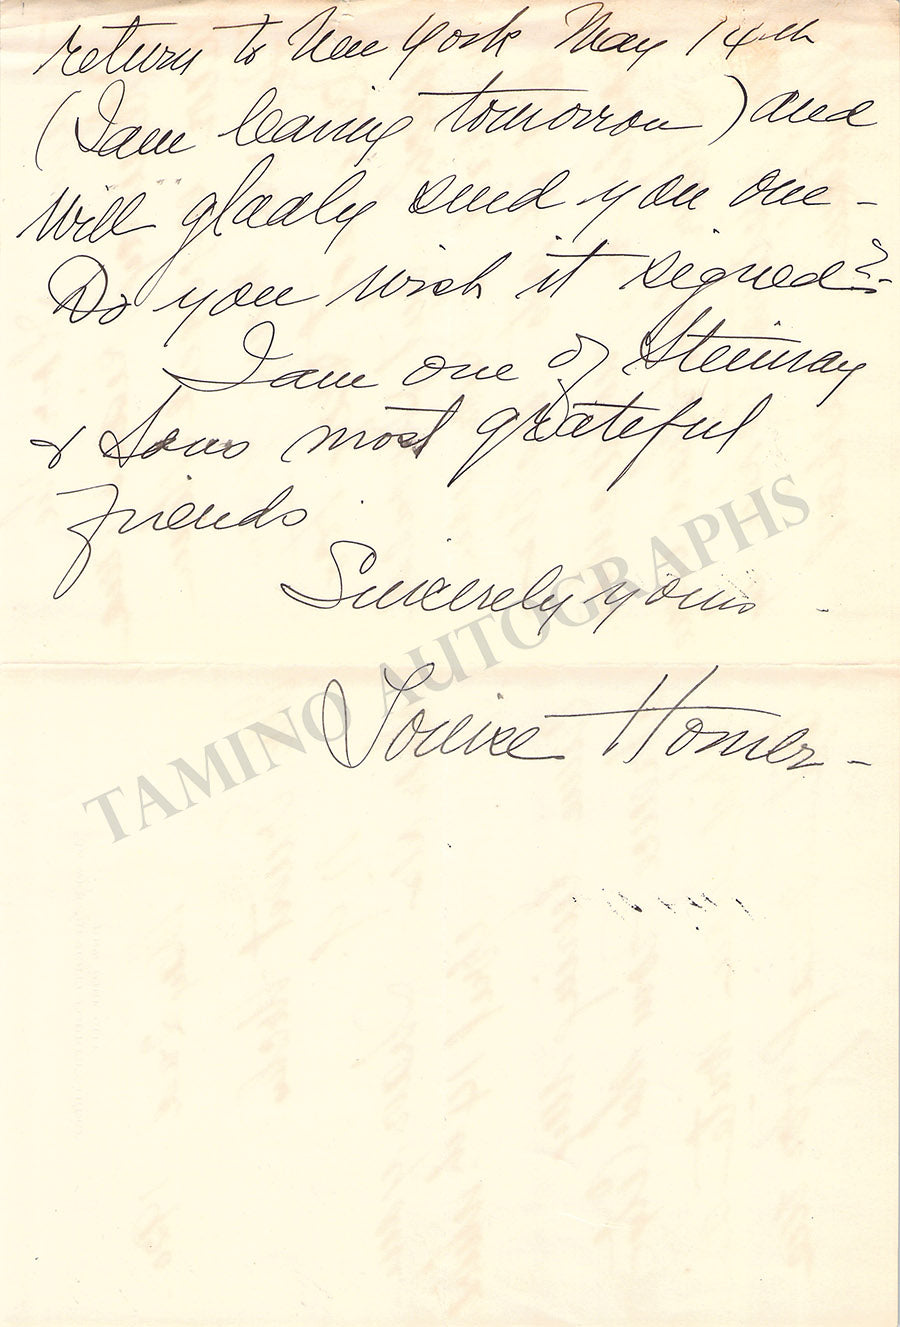 return to New York May 14th
(I am leaving tomorrow) and
will gladly send you one -
Do you wish it signed? -
I am one of Steinway
& Sons most grateful
friends.
Sincerely yours -
Louise Homer -
TAMINO AUTOGRAPHS